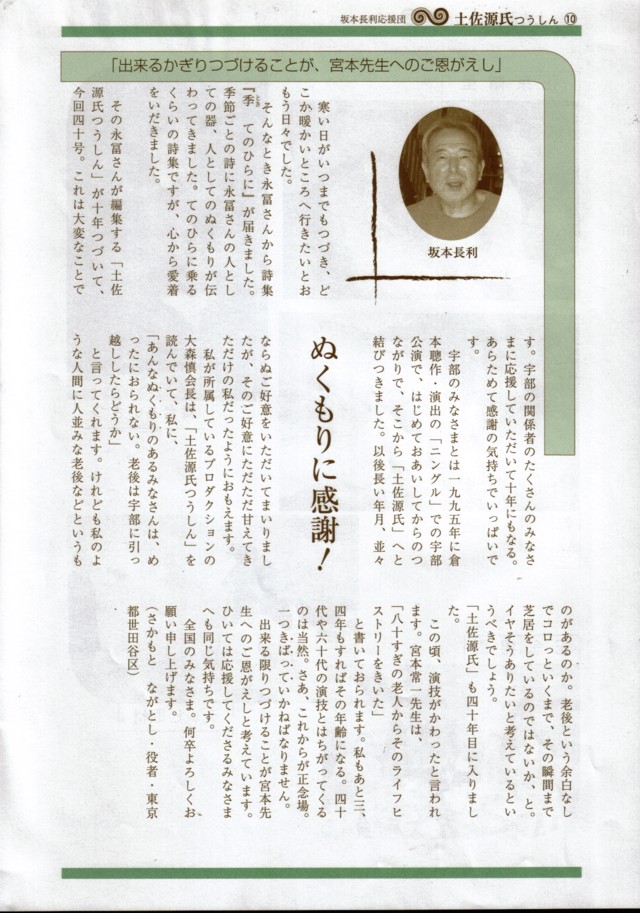 坂本長利応援団 土佐源氏つうしん ⑩
「出来るかぎりつづけることが、宮本先生へのご恩がえし」
坂本長利
寒い日がいつまでもつづき、ど
こか暖かいところへ行きたいとお
もう日々でした。
そんなとき永冨さんから詩集
『季 てのひらに』が届きました。
季節ごとの詩に永冨さんの人とし
ての器、人としてのぬくもりが伝
わってきました。てのひらに乗る
くらいの詩集ですが、心から愛着
をいだきました。
その永冨さんが編集する「土佐
源氏つうしん」が十年つづいて、
今回四十号。これは大変なことで
す。宇部の関係者のたくさんのみなさ
まに応援していただいて十年にもなる。
あらためて感謝の気持ちでいっぱいで
す。
宇部のみなさまとは一九九五年に倉
本聰作・演出の「ニングル」での宇部
公演で、はじめておあいしてからのつ
ながりで、そこから「土佐源氏」へと
結びつきました。以後長い年月、並々
ぬくもりに感謝!
ならぬご好意をいただいてまいりまし
たが、そのご好意にただただ甘えてき
ただけの私だったようにおもえます。
私が所属しているプロダクションの
大森慎会長は、「土佐源氏つうしん」を
読んでいて、私に、
「あんなぬくもりのあるみなさんは、め
ったにおられない。老後は宇部に引っ
越ししたらどうか」
と言ってくれます。けれども私のよ
うな人間に人並みな老後などというも
のがあるのか。老後という余白なし
でコロっといくまで、その瞬間まで
芝居をしているのではないか、と。
イヤそうありたいと考えているとい
うべきでしょう。
「土佐源氏」も四十年目に入りまし
た。
この頃、演技がかわったと言われ
ます。宮本常一先生は、
「八十すぎの老人からそのライフヒ
ストリーをきいた」
と書いておられます。私もあと三、
四年もすればその年齢になる。四十
代や六十代の演技とはちがってくる
のは当然。さあ、これからが正念場。
一つきばっていかねばなりません。
出来る限りつづけることが宮本先
生へのご恩がえしと考えています。
ひいては応援してくださるみなさま
へも同じ気持ちです。
全国のみなさま。何卒よろしくお
願い申し上げます。
(さかもと ながとし・役者・東京
都世田谷区)